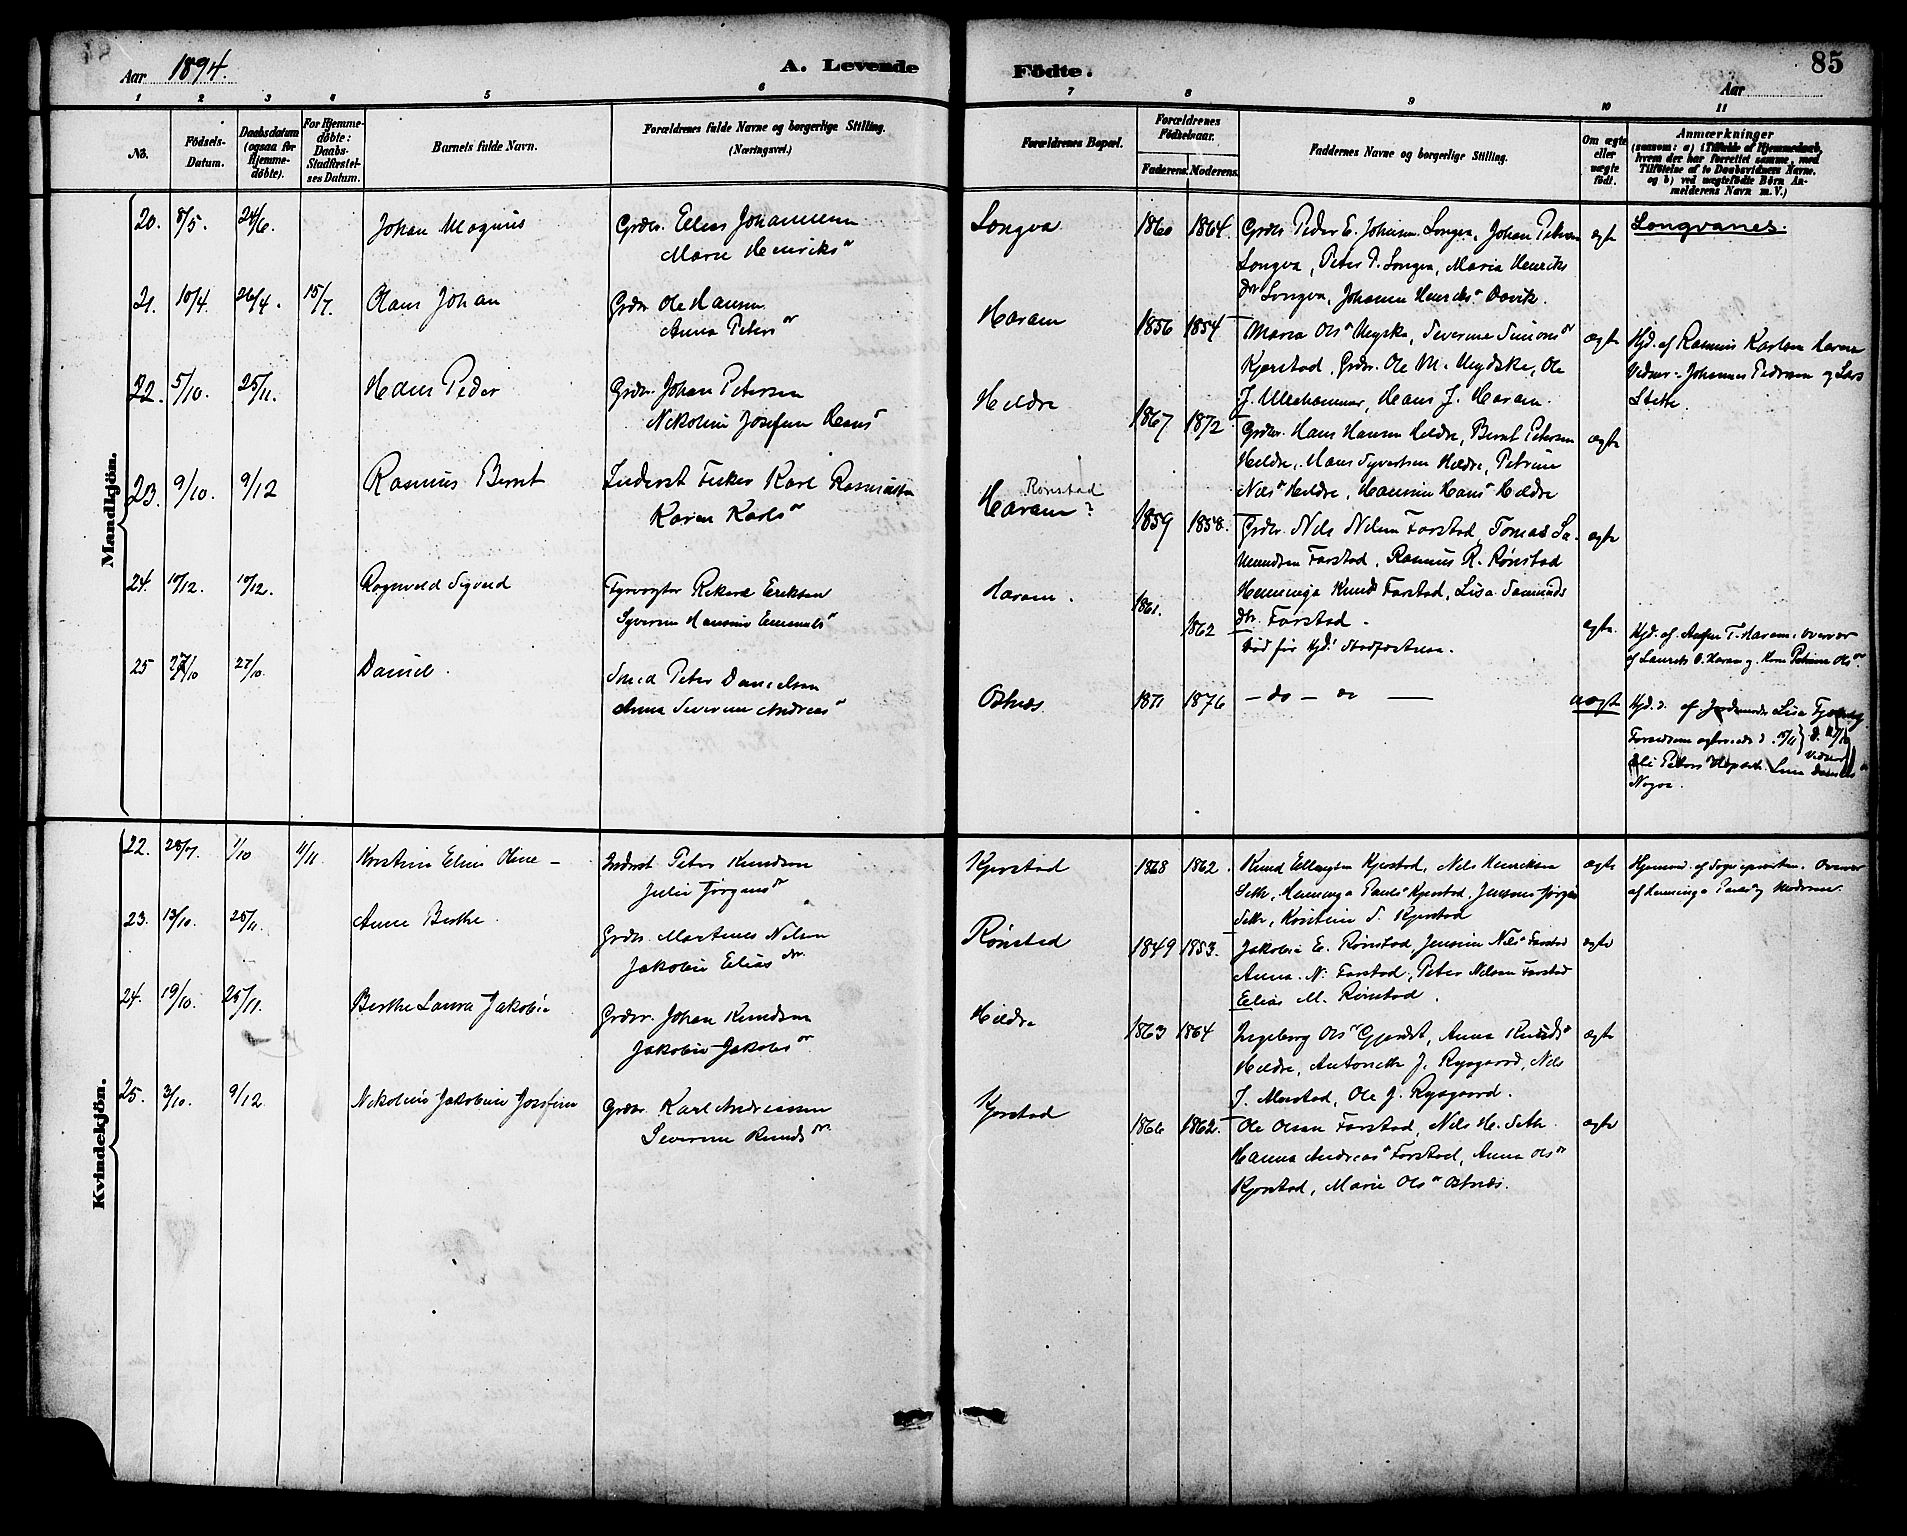 Aar 1894.
A. Levende
Födte.
85
Aar
1 2 3 4 5 6 7 8 9 10 11
No.
Födsels-Datum.
Daabsdatum (ogsaa for Hjemme-döbte).
For Hjemme-döbte: Daabs-Stadfæstel-ses Datum.
Barnets fulde Navn.
Forældrenes fulde Navne og borgerlige Stilling.
(Næringsvei.)
Forældrenes Bopæl.
Forældrenes Födselsaar.
Faderens. Moderens.
Faddernes Navne og borgerlige Stilling.
Om ægte eller uægte födt.
Anmærkninger
(saasom: a) i Tilfælde af Hjemmedaab,
hvem der har forrettet samme, med
Tilföielse af to Daabsvidners Navne,
og b) ved uægtefödte Börn An-
melderens Navn m. V.)
Mandkjön.
20. 8/5. 24/6. Johan Magnus
Grdbr. Elias Johannesen
Marie Henriks"
Longva 1860 1864.
Grdbr. Peder E. Johnsen Longva, Johan Petersen
Longva, Peter P. Longva, Maria Henriks
dr Longva, Johanna Henriks" Davik.
ægte
Longvanes.
21. 10/4. 26/4. 15/7. Olaus Johan
Grdbr. Ole Hansen
Anna Peters dr
Haram 1856 1854
Maria Ols" Uksnø, Severine Simons dr
Kjerstad, Grdbr. Ole M.
J. Ulvehammer, Hans J. Haram.
ægte
Hjd. af Rasmus Karlsen Haram
Vidner: Johannes Pedersen og Lars
Slette.
22. 5/10. 25/11. Hans Peder
Grdbr. Johan Petersen
Nikoline Josefine Hans"
Hildre 1867 1872
Grdbr. Hans Hansen Hildre, Bernt Petersen
Hildre, Hans Syvertsen Hildre, Petrine
Nils" Hildre, Hansine Hans" Hildre
ægte
23. 9/10. 9/12 Rasmus Bernt
Inderst Fisker Karl Rasmussen
Karen Karls"
Rønstad
Haram? 1859 1858.
Grdbr. Nils Nilsen Farstad, Tomas Sa-
mundsen Farstad, Rasmus R. Rønstad
Henninga Knuds Farstad, Lisa Samunds
dr. Farstad.
ægte
24. 10/12. 10/12. Ragnvald Sigurd
Fyrvogter Rikard Eriksen
Syverine Hansine Emanuels"
Haram. 1861. 1862
Død før Hjd. Stadfæstelse.
ægte.
Hjd. af T. Haram, overvær
af Laurits O. Haram og Petrine Ols dr.
25 27/10 27/10. Daniel.
Smed Peter Danielsen
Anna Severine Andreas"
Østnes 1871 1876
— do — do —
uægte
Hjd. af Jordemoder Lisa
Forældrene ægteviede d. 15/11
Vidner
Peters
Nogva.
Kvindekjön.
22. 28/7. 7/10 11/11 Kristine Elise Oline —
Inderst Peter Knudsen
Julie Jørgens dr
Kjerstad 1868 1862.
Knud Ellingsen Kjerstad, Nils Henriksen
Seth, Henninga Pauls" Kjerstad, Jensine Jørgens
Seth, Kristine S. Kjerstad
ægte
Hjemmed. af Sogneprесten. Overvær
af Henninga Pauls" og Moderen.
23. 13/10. 25/11. Anne Berthe.
Grdbr. Martines Nilsen
Jakobine Elias dr.
Rønstad 1849 1853.
Jakobine E. Rønstad, Jensine Nils" Farstad
Anna N. Farstad, Peter Nilsen Farstad
Elias M. Rønstad.
ægte
24. 19/10. 25/11. Berthe Laura Jakobie
Grdbr. Johan Knudsen
Jakobine Jakobs dr
Hildre 1863 1864
Ingeborg Ols" Gjerdet, Anna Knuds"
Hildre, Antonette J. Rysgaard, Nils
J. Alvestad, Ole J. Rysgaard.
ægte
25. 3/10. 9/12 Nikoline Jakobine Josefine
Grdbr. Karl Andreassen
Severine Knuds dr.
Kjerstad 1866 1862.
Ole Olsen Farstad, Nils H. Seth.
Hanna Andreas" Farstad, Anna Ols dr
Kjerstad, Marie Ols" Østnes.
ægte